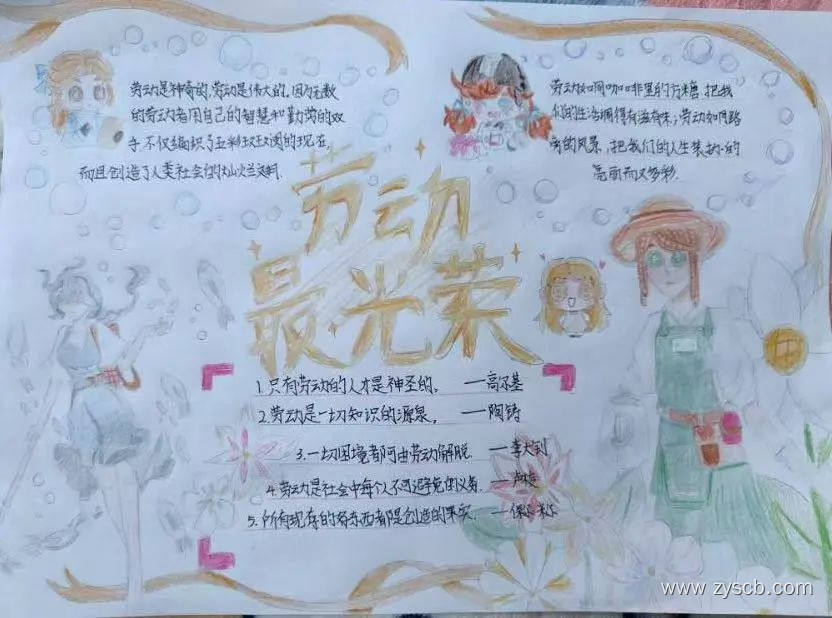 劳动是神奇的,劳动是伟大的。因为无数
的劳动者用自己的智慧和勤劳的双
手不仅编织了五彩斑斓的现在,
而且创造了人类社会的灿烂文明.
劳动如同咖啡里的方糖,把我
们的生活调得有滋有味;劳动如同路
旁的风景,把我们的人生装扮的
亮丽而又多彩.
劳动
最光荣
1.只有劳动的人才是神圣的。 —高尔基
2.劳动是一切知识的源泉。 —陶铸
3.一切困境都可由劳动解脱. —李大钊
4.劳动是社会中每个人不可避免的义务. —卢梭
5.所有现存的好东西都是创造的果实. —
www.zyscb.com